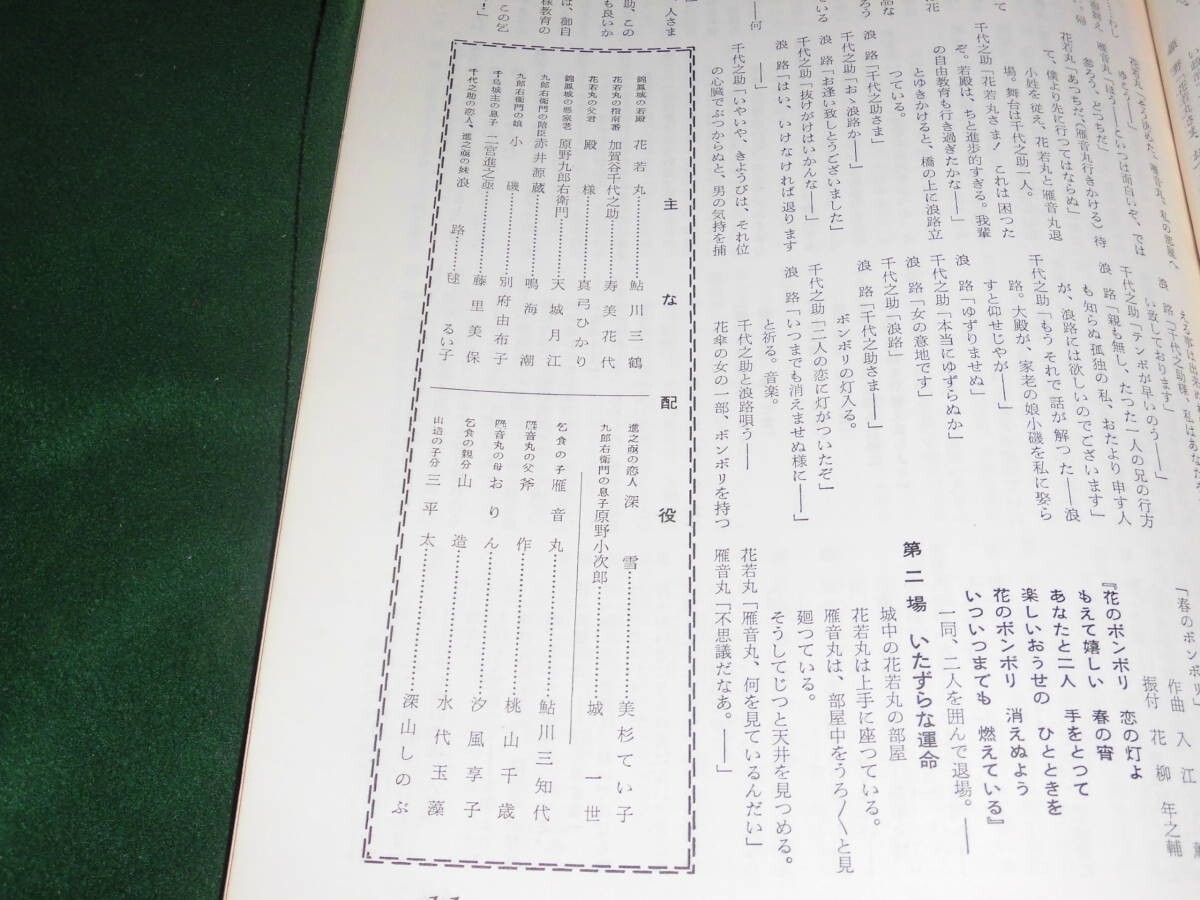 花のボンボリを持つ
「春のボンボリ」
作曲 入江 薫
振付 花柳 年之輔
『花のボンボリ 恋の灯よ
もえて嬉しい 春の宵
あなたと二人 手をとつて
楽しいおうせの ひとときを
花のボンボリ 消えぬよう
いついつまでも 燃えている』
一同、二人を囲んで退場。――
第二場 いたずらな運命
城中の花若丸の部屋
花若丸は上手に座つている。
雁音丸は、部屋中をうろ〱と見
廻つている。
そうしてじつと天井を見つめる。
花若丸「雁音丸、何を見ているんだい」
雁音丸「不思議だなあ。――」
い致しております」
千代之助「テンポが早いのう――」
浪 路「親も無し、たつた一人の兄の行方
も知らぬ孤独の私、おたより申す人
が、浪路には欲しいのでございます」
千代之助「もうそれで話が解った――浪
路。大殿が、家老の娘小磯を私に娶ら
すと仰せじやが――」
浪 路「ゆずりませぬ」
千代之助「本当にゆずらぬか」
浪 路「女の意地です」
千代之助「浪路」
浪 路「千代之助さま――」
ボンボリの灯入る。
千代之助「二人の恋に灯がついたぞ」
浪 路「いつまでも消えませぬ様に――」
と祈る。音楽。
千代之助と浪路唄う――
花傘の女の一部、ボンボリを持つ
雁音丸「ほう――こいつは面白いぞ、では
参ろう、とつちだ」
花若丸「あつちだ、(雁音丸行きかける)待
て、僕より先に行つてはならぬ」
小姓を従え、花若丸と雁音丸退
場。舞台は千代之助一人。
千代之助「花若丸さま! これは困つた
ぞ。若殿は、ちと進歩的すぎる。我輩
の自由教育も行き過ぎたかな――」
とゆきかけると、橋の上に浪路立
つている。
浪 路「千代之助さま」
千代之助「おゝ浪路か――」
浪 路「お逢い致しとうございました」
千代之助「抜けがけはいかんな――」
浪 路「はい、いけなければ退ります
――」
千代之助「いやいや、きようびは、それ位
の心臓でぶつからぬと、男の気持を捕
主な配役
錦鳳城の若殿 花若丸……鮎川三鶴
花若丸の指南番 加賀谷千代之助……寿美花代
花若丸の父君 殿様……真弓ひかり
錦鳳城の悪家老 原野九郎右衛門……天城月江
九郎右衛門の陪臣 赤井源蔵……鳴海潮
九郎右衛門の娘 小磯……別府由布子
千鳥城主の息子 二宮進之亟……藤里美保
千代之助の恋人、進之亟の妹 浪路……毬るい子
進之亟の恋人 深雪……美杉てい子
九郎右衛門の息子 原野小次郎……城一世
乞食の子 雁音丸……鮎川三知代
雁音丸の父 斧作……桃山千歳
雁音丸の母 おりん……汐風享子
乞食の親分 山造……水代玉藻
山造の子分 三平太……深山しのぶ
11